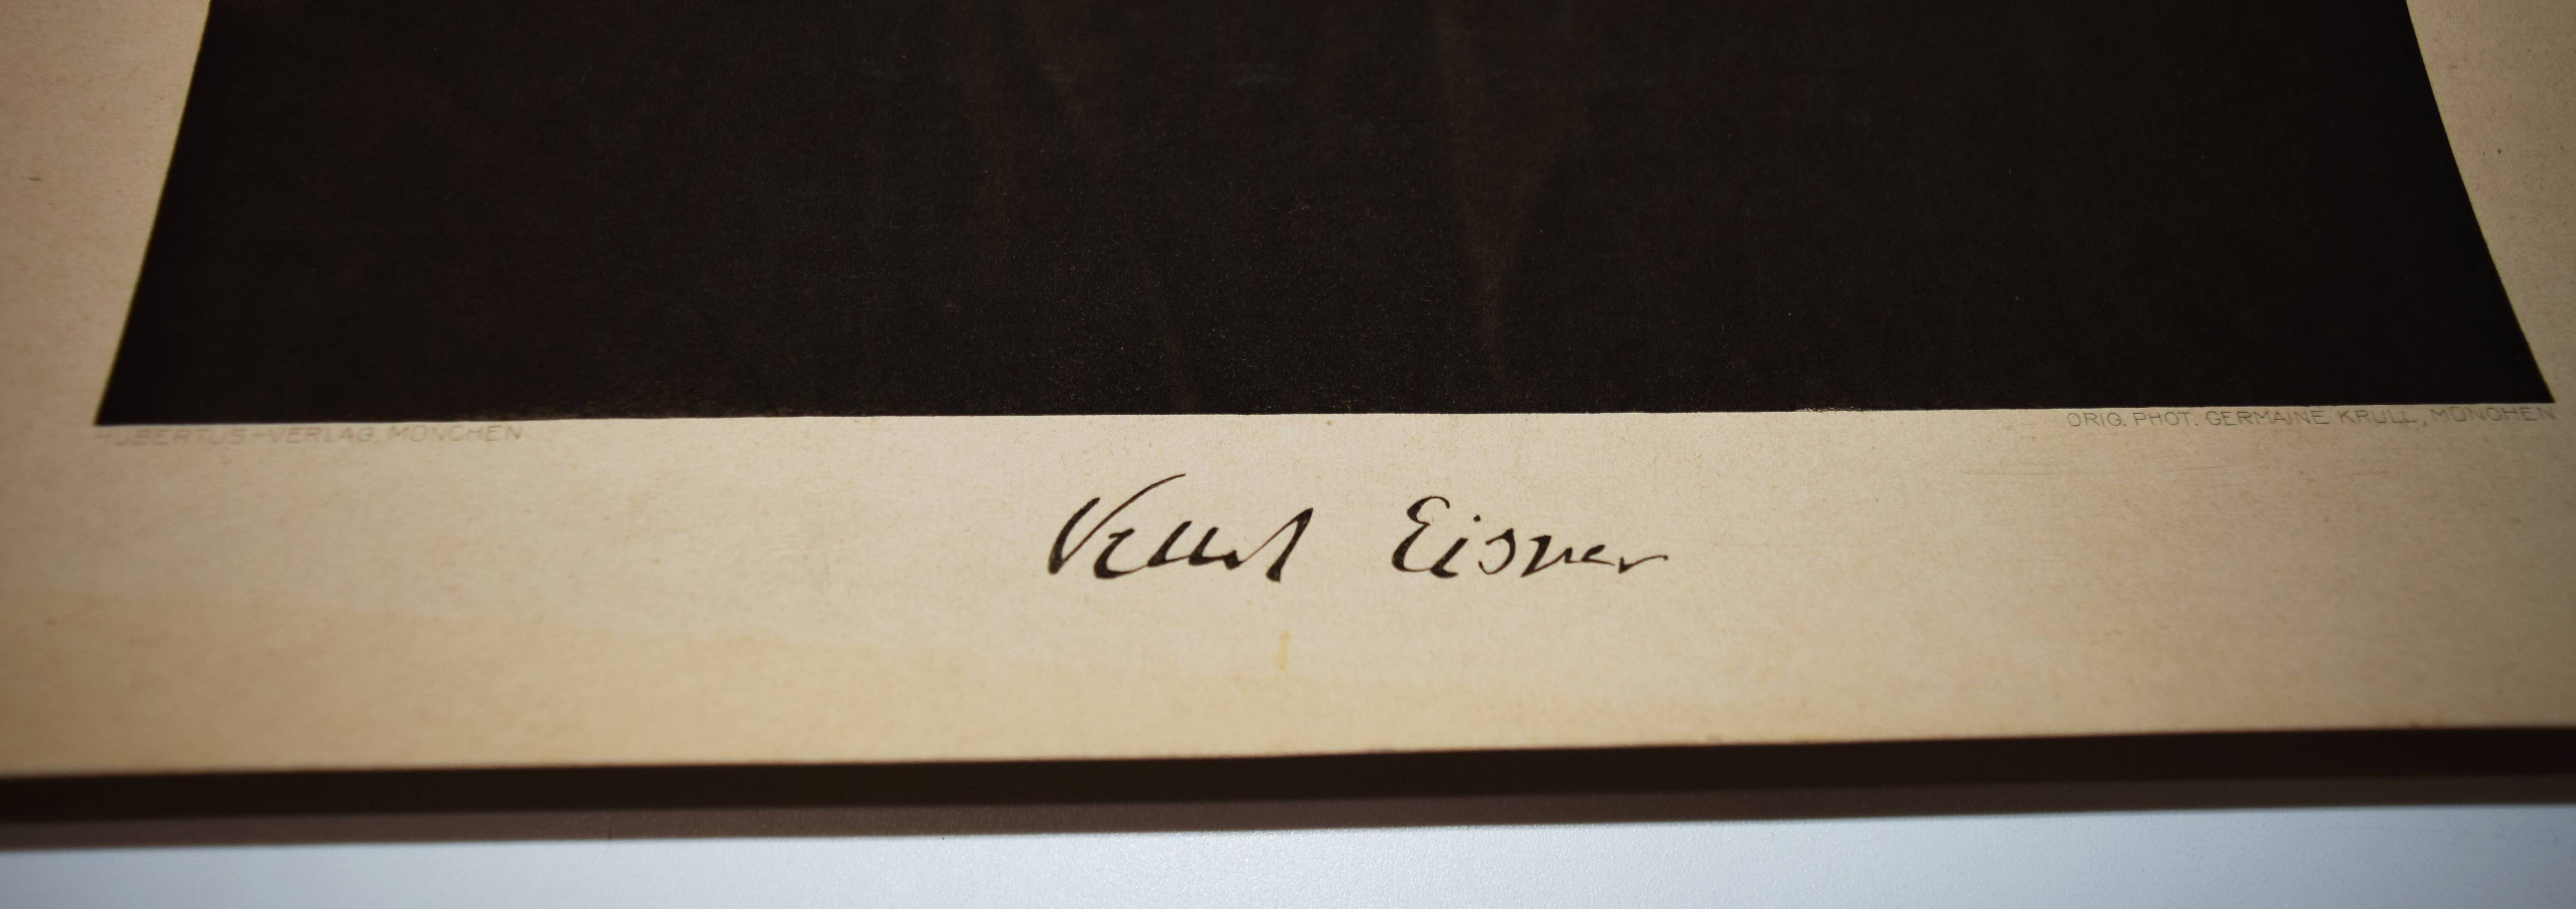 HUBERTUS-VERLAG, MÜNCHEN
ORIG. PHOT. GERMAINE KRULL, MÜNCHEN
Kurt Eisner